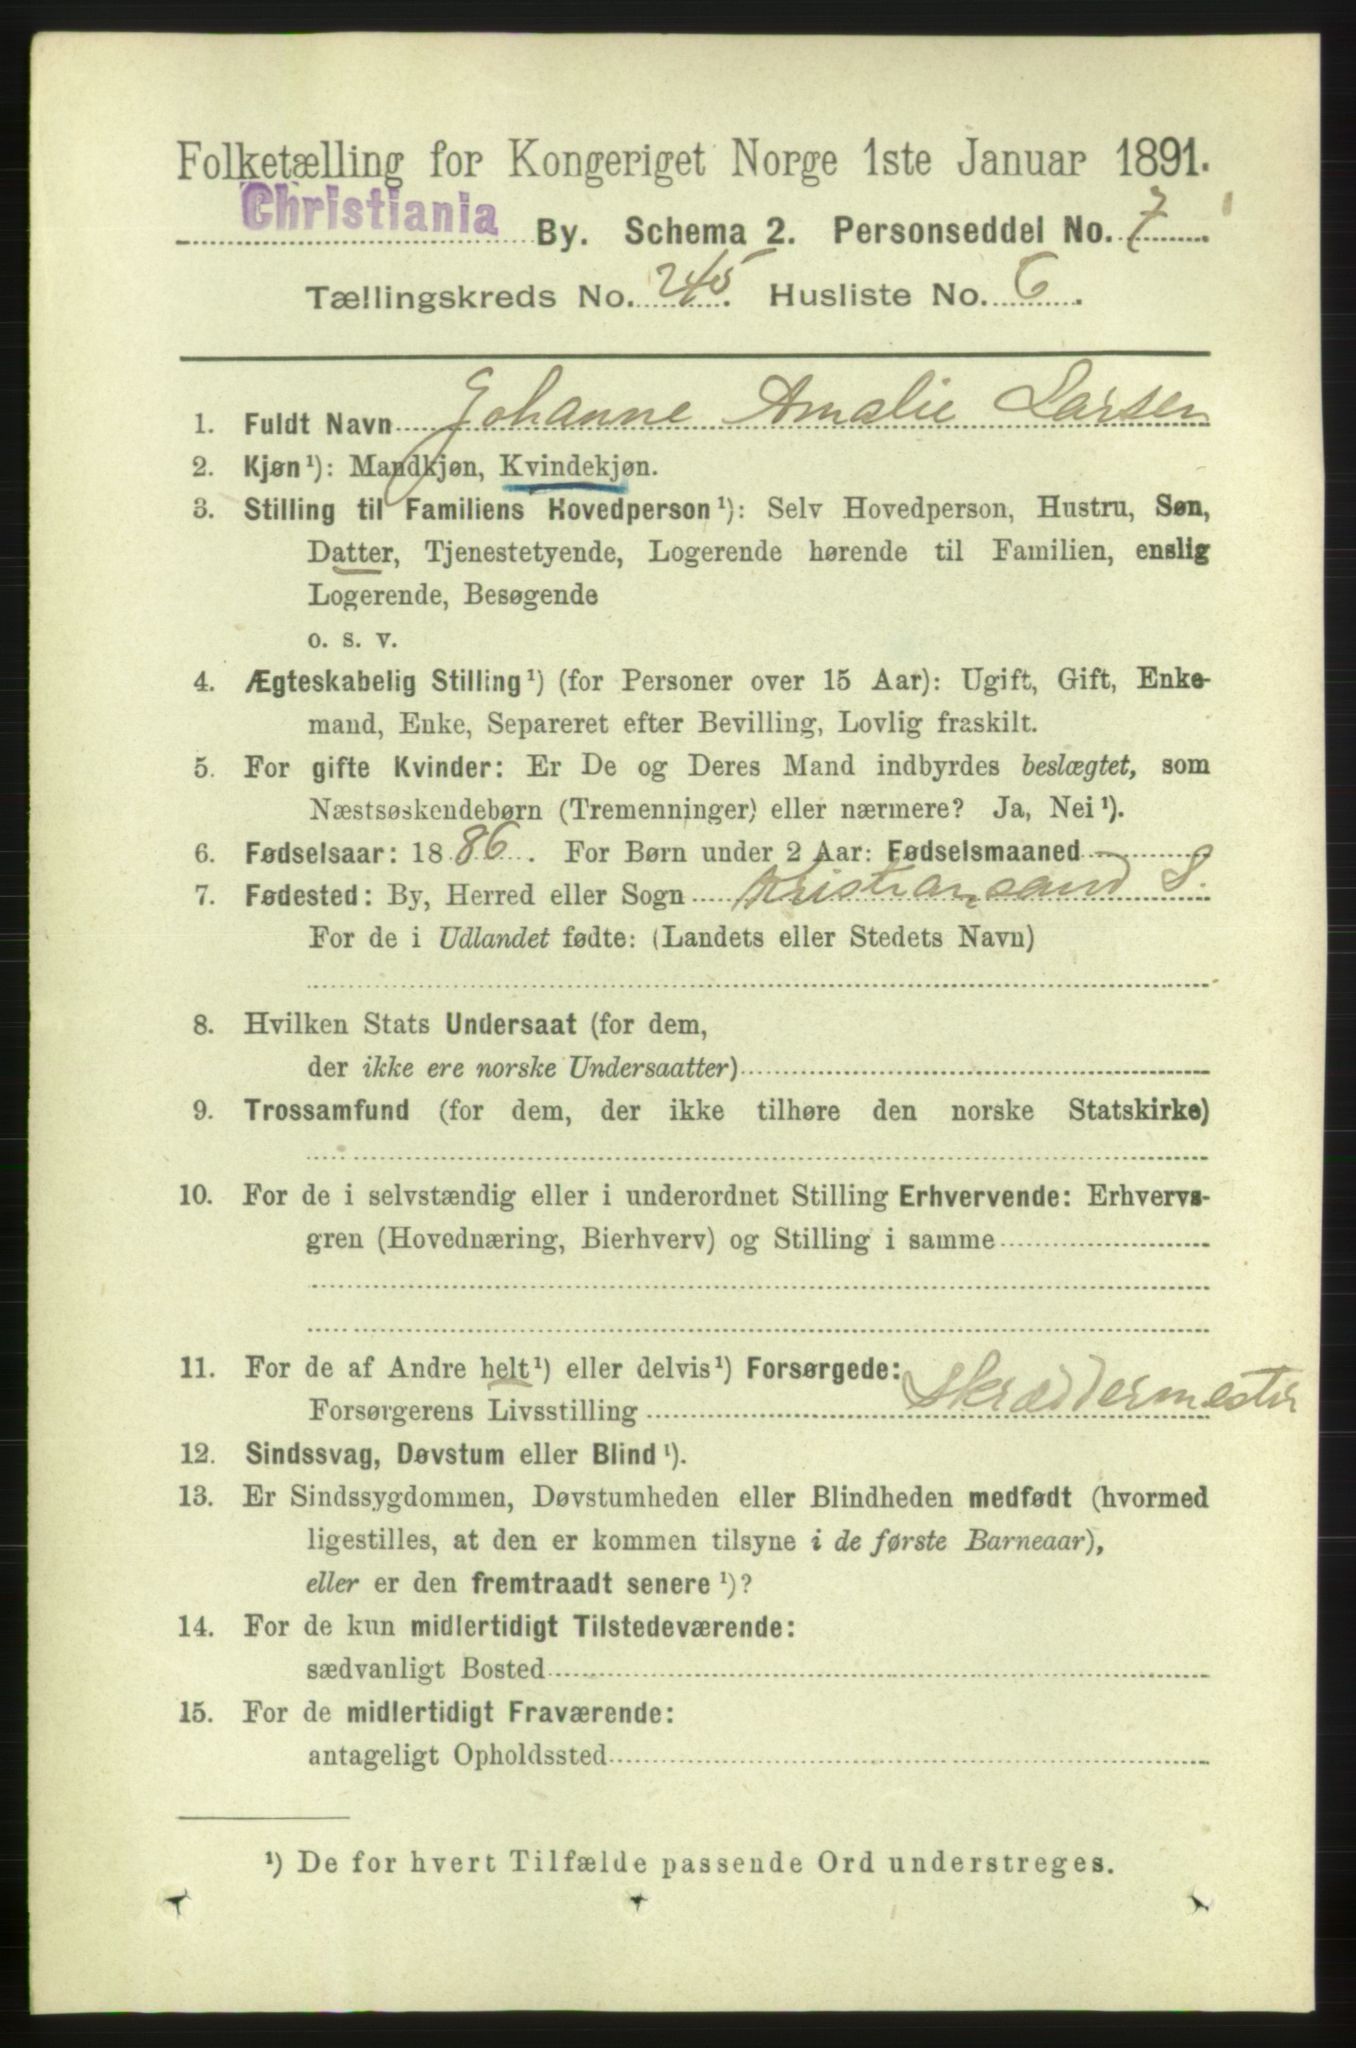 Folketælling for Kongeriget Norge 1ste Januar 1891.
Christiania By. Schema 2. Personseddel No. 7
Tællingskreds No. 245. Husliste No. 6.
1. Fuldt Navn Johanne Amalie Larsen
2. Kjøn¹): Mandkjøn, Kvindekjøn.
3. Stilling til Familiens Hovedperson¹): Selv Hovedperson, Hustru, Søn,
Datter, Tjenestetyende, Logerende hørende til Familien, enslig
Logerende, Besøgende
o. s. v.
4. Ægteskabelig Stilling¹) (for Personer over 15 Aar): Ugift, Gift, Enke-
mand, Enke, Separeret efter Bevilling, Lovlig fraskilt.
5. For gifte Kvinder: Er De og Deres Mand indbyrdes beslægtet, som
Næstsøskendebørn (Tremenninger) eller nærmere? Ja, Nei¹).
6. Fødselsaar: 1886. For Børn under 2 Aar: Fødselsmaaned
7. Fødested: By, Herred eller Sogn Kristiansand S.
For de i Udlandet fødte: (Landets eller Stedets Navn)
8. Hvilken Stats Undersaat (for dem,
der ikke ere norske Undersaatter)
9. Trossamfund (for dem, der ikke tilhøre den norske Statskirke)
10. For de i selvstændig eller i underordnet Stilling Erhvervende: Erhvervs-
gren (Hovednæring, Bierhverv) og Stilling i samme
11. For de af Andre helt¹) eller delvis¹) Forsørgede:
Forsørgerens Livsstilling Skræddermester
12. Sindssvag, Døvstum eller Blind¹).
13. Er Sindssygdommen, Døvstumheden eller Blindheden medfødt (hvormed
ligestilles, at den er kommen tilsyne i de første Barneaar),
eller er den fremtraadt senere¹)?
14. For de kun midlertidigt Tilstedeværende:
sædvanligt Bosted
15. For de midlertidigt Fraværende:
antageligt Opholdssted
¹) De for hvert Tilfælde passende Ord understreges.